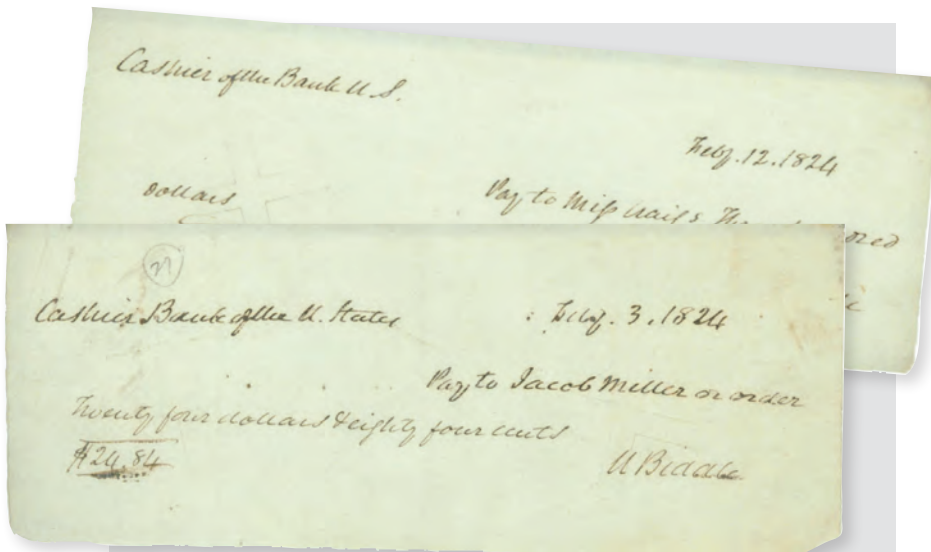 Cashier of the Bank U.S.
Feby. 12. 1824
Pay to Miss
dollars
27
Cashier Bank of the U. States : Feby. 3. 1824
Pay to Jacob Miller or order
Twenty four dollars & eighty four cents
$24.84
N Biddle